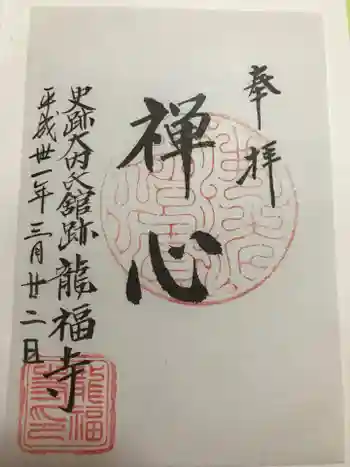 奉拝
禅心
史跡大内氏館跡 龍福寺
平成卅一年三月廿二日
龍福寺印